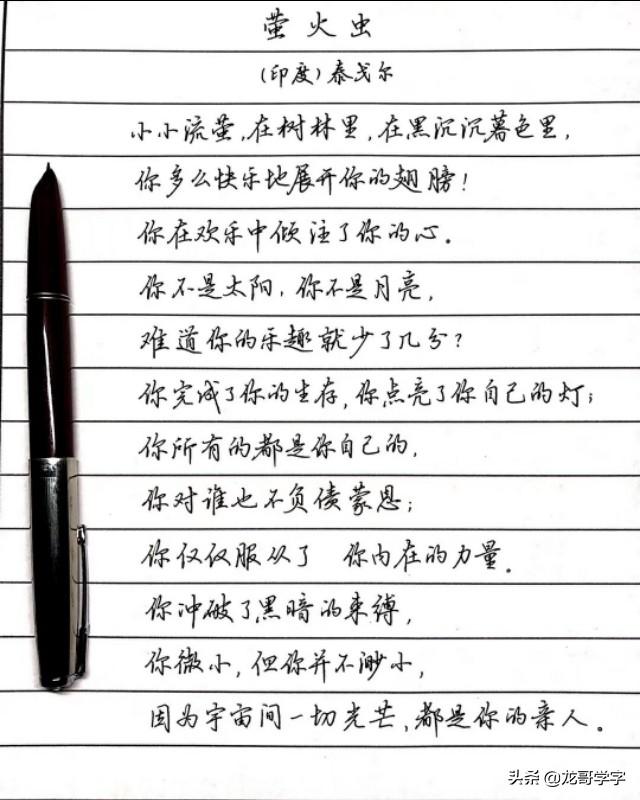 萤火虫
(印度)泰戈尔
小小流萤,在树林里,在黑沉沉暮色里,
你多么快乐地展开你的翅膀!
你在欢乐中倾注了你的心。
你不是太阳,你不是月亮,
难道你的乐趣就少了几分?
你完成了你的生存,你点亮了你自己的灯;
你所有的都是你自己的,
你对谁也不负债蒙恩;
你仅仅服从了 你内在的力量。
你冲破了黑暗的束缚,
你微小,但你并不渺小,
因为宇宙间一切光芒,都是你的亲人。
头条 @龙哥学字